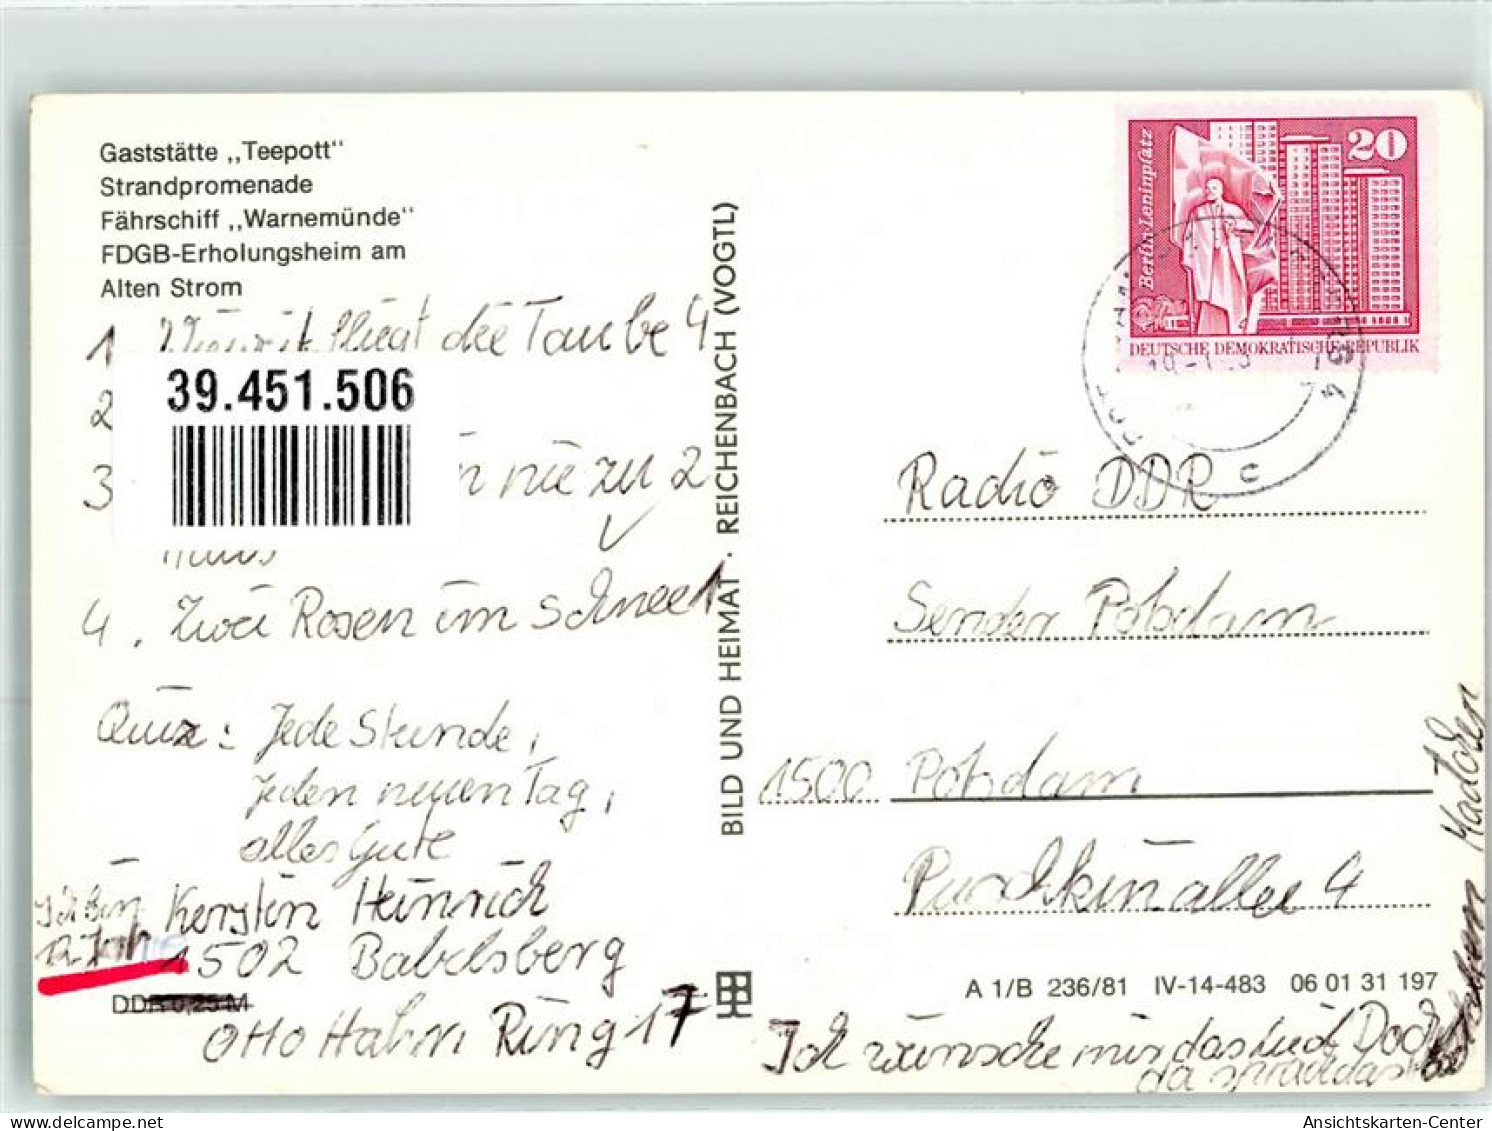 Gaststätte „Teepott"
Strandpromenade
Fährschiff „Warnemünde"
FDGB-Erholungsheim am
Alten Strom
1 fliegt die Taube 4
39.451.506
2
3 nie zu 2
Haus
4. Zwei Rosen im Schnee 1
Quiz: Jede Stunde,
jeden neuen Tag,
alles Gute
Ich bin Kerstin Heinrich
12 Jahre 1502 Babelsberg
DDR 0,25 M
Otto Hahn Ring 17
BILD UND HEIMAT · REICHENBACH (VOGTL)
Berlin-Leninplatz
20
DEUTSCHE DEMOKRATISCHE REPUBLIK
Radio DDR
Sender Potsdam
1500 Potsdam
Puschkinallee 4
A 1/B 236/81 IV-14-483 06 01 31 197
Ich wünsche mir das Lied Doch
da sprach das
Mädchen
Ansichtskarten-Center